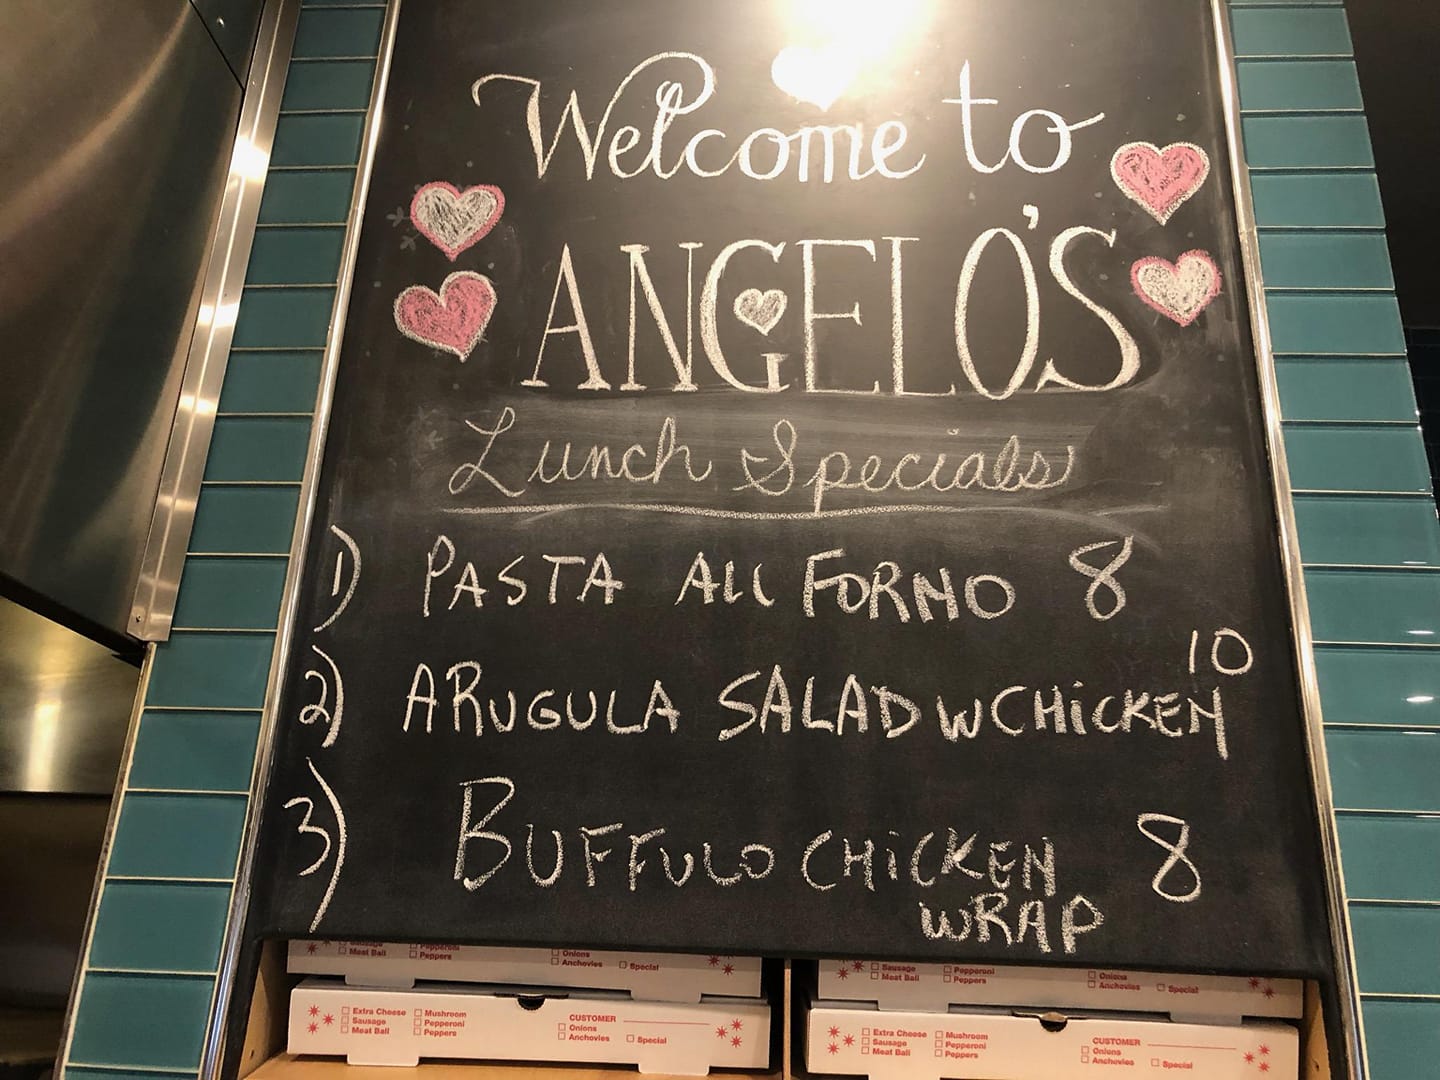 Welcome to
ANGELO'S
Lunch Specials
1) PASTA ALL FORNO 8
2) ARUGULA SALAD W CHICKEN 10
3) BUFFULO CHICKEN 8
WRAP
Sausage Pepperoni
Meat Ball Peppers
Onions
Anchovies Special
Sausage Pepperoni
Meat Ball Peppers
Onions
Anchovies Special
Extra Cheese Mushroom
Sausage Pepperoni
Meat Ball Peppers
CUSTOMER
Onions
Anchovies Special
Extra Cheese Mushroom
Sausage Pepperoni
Meat Ball Peppers
CUSTOMER
Onions
Anchovies Special